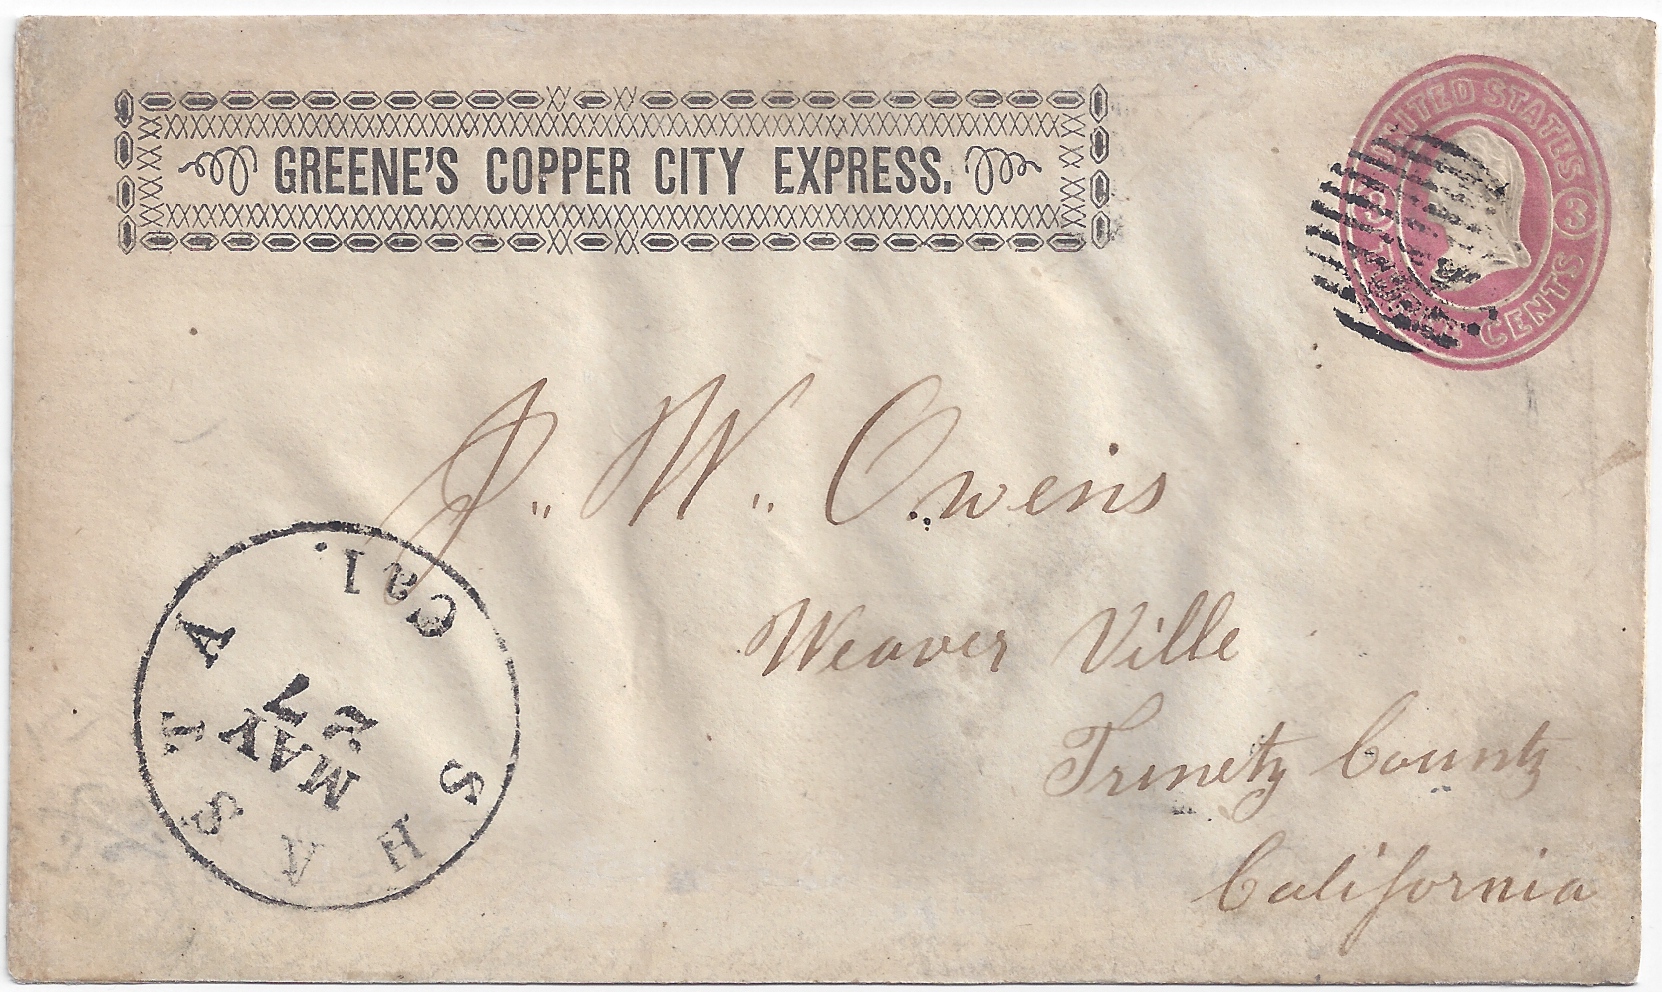 GREENE'S COPPER CITY EXPRESS.
UNITED STATES
3 3
THREE CENTS
J. W. Owens
Weaver Ville
Trinety County
California
SHASTA Cal.
MAY
27